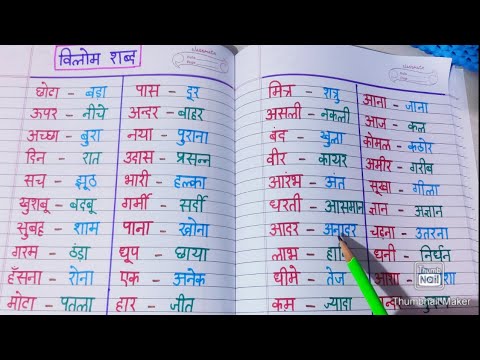 विलोम शब्द
छोटा - बड़ा
ऊपर - नीचे
अच्छा - बुरा
दिन - रात
सच - झूठ
खुशबू - बदबू
सुबह - शाम
गरम - ठंड़ा
हँसना - रोना
मोटा - पतला
पास - दूर
अन्दर - बाहर
नया - पुराना
उदास - प्रसन्न
भारी - हल्का
गर्मी - सर्दी
पाना - खोना
धूप - छाया
एक - अनेक
हार - जीत
मित्र - शत्रु
असली - नकली
बंद - खुला
वीर - कायर
आरंभ - अंत
धरती - आसमान
आदर - अनादर
लाभ -
धीमे - तेज
कम - ज्यादा
आना - जाना
आज - कल
कोमल - कठोर
अमीर - गरीब
सूखा - गीला
ज्ञान - अज्ञान
चढ़ना - उतरना
धनी - निर्धन
Thumb
Nail
Thumbnail Maker